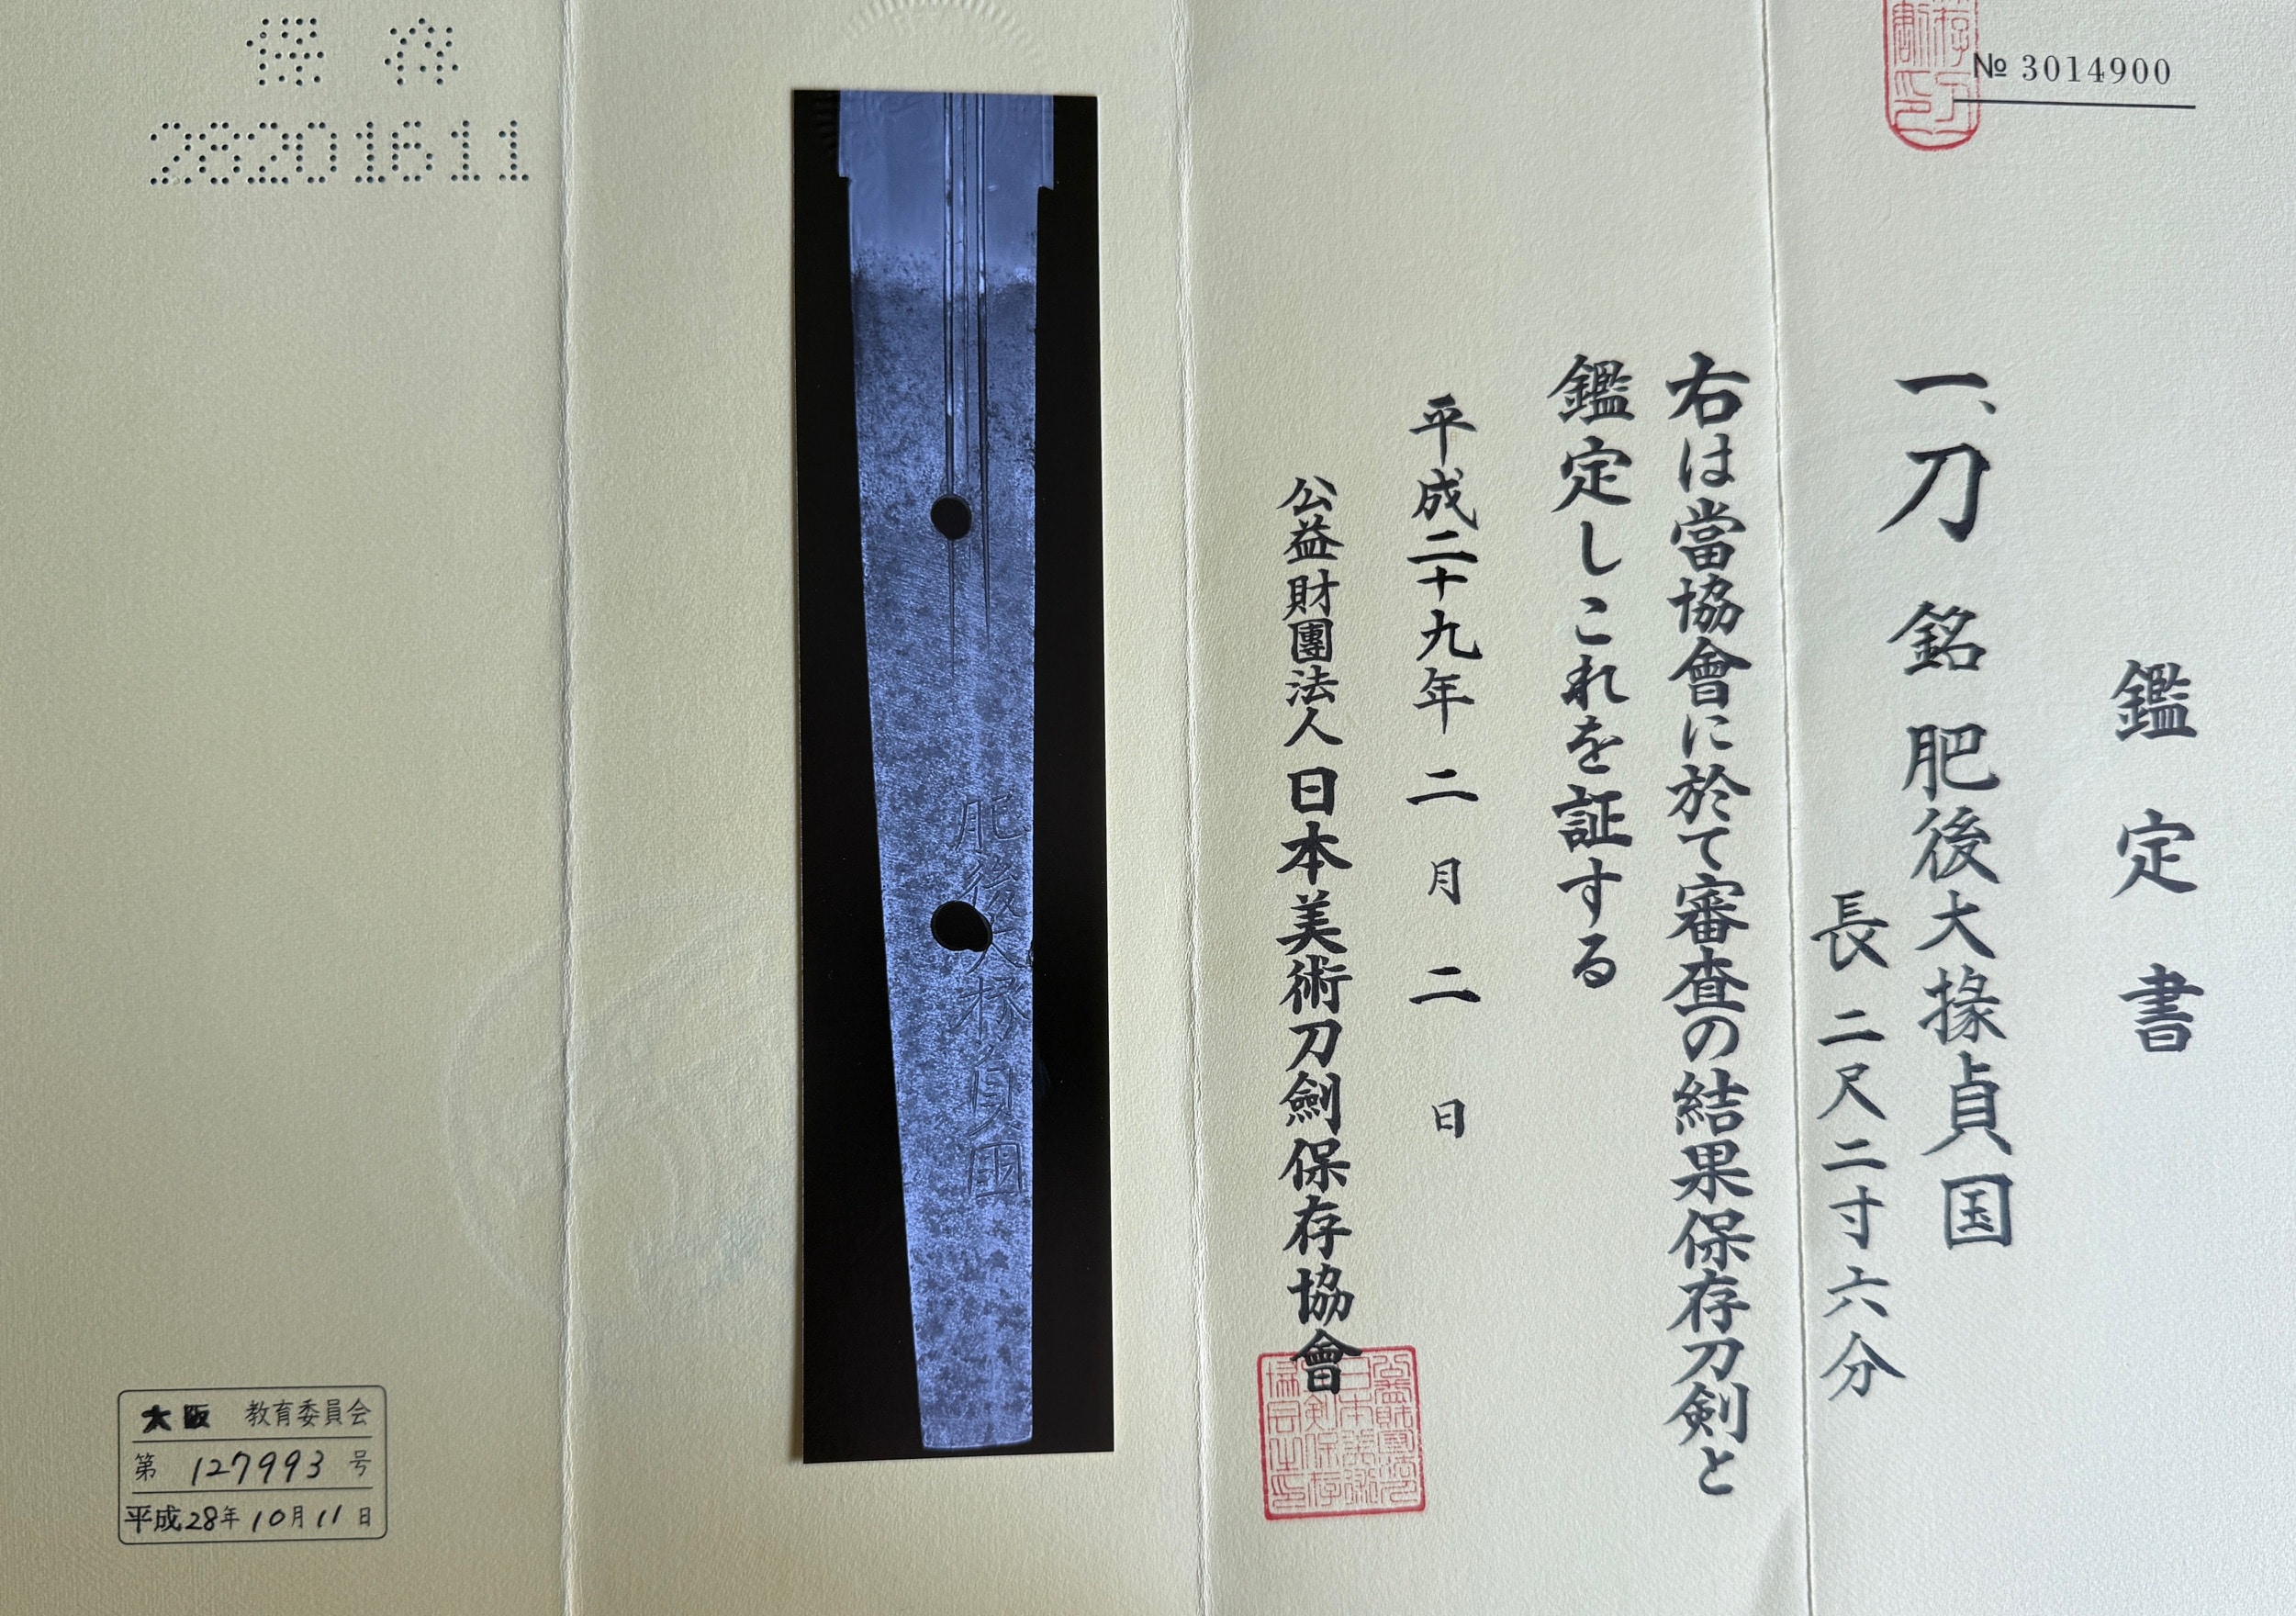 № 3014900
鑑定書
一、刀 銘 肥後大掾貞国
長 二尺二寸六分
右は當協會に於て審査の結果保存刀剣と
鑑定しこれを証する
平成二十九年 二月 二日
公益財團法人 日本美術刀劍保存協會
公益財團法人
日本美術刀
剣保存
協会之印
肥後大掾貞國
保存
28201611
大阪 教育委員会
第 127993 号
平成28年10月11日